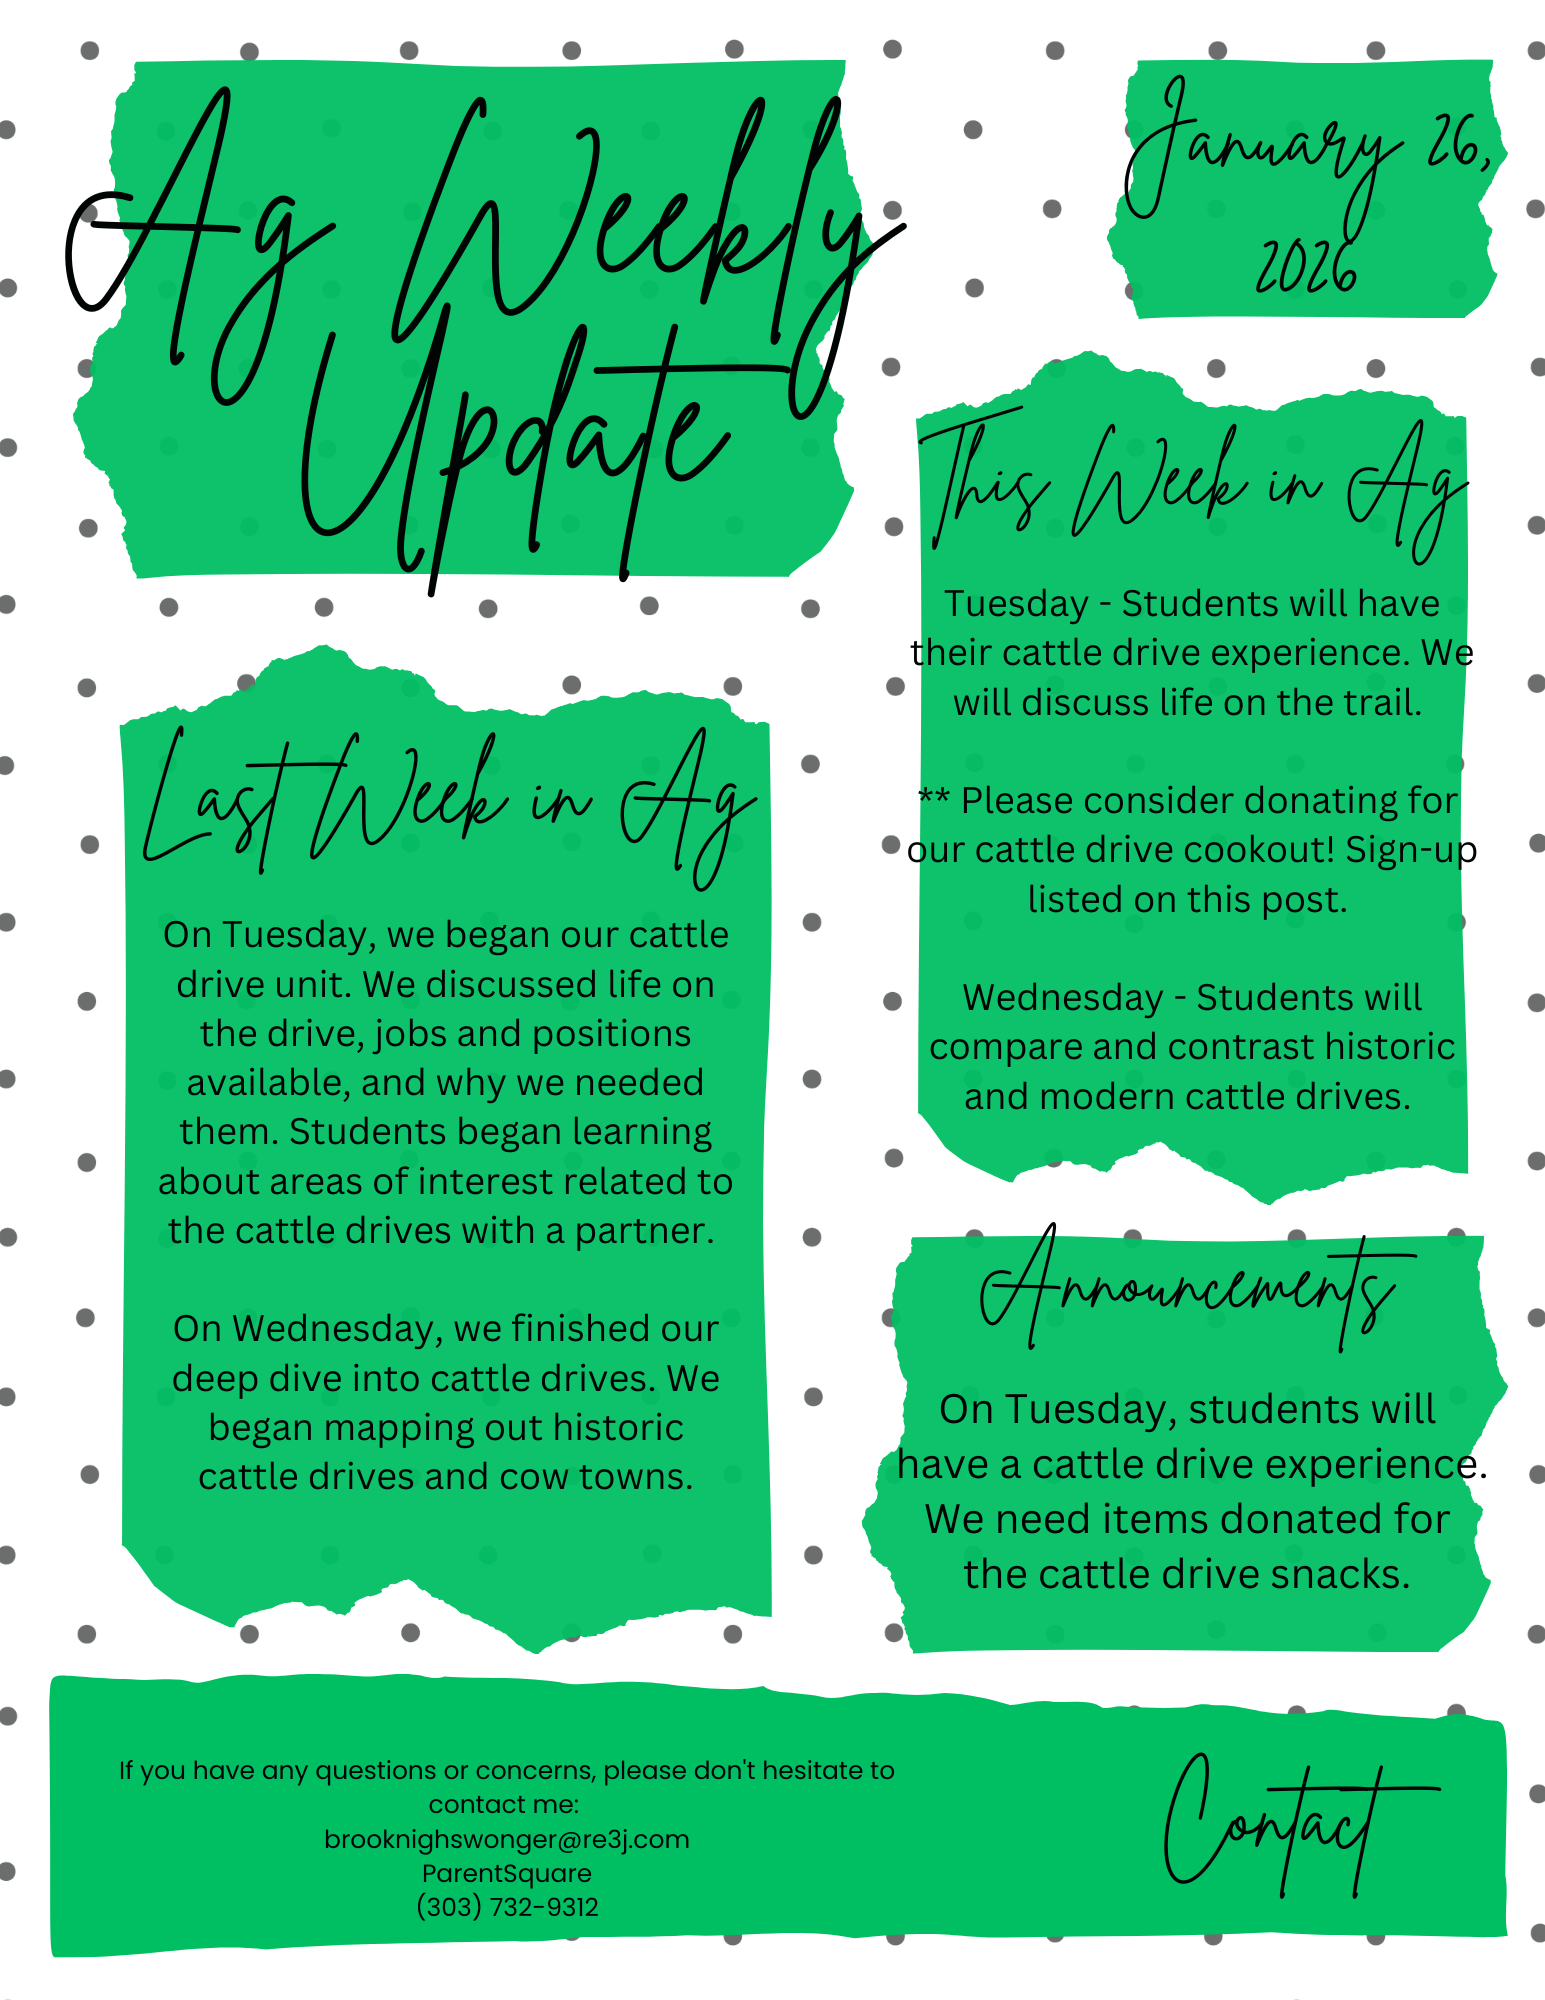 Ag Weekly
Update
January 26,
2026
Last Week in Ag
On Tuesday, we began our cattle
drive unit. We discussed life on
the drive, jobs and positions
available, and why we needed
them. Students began learning
about areas of interest related to
the cattle drives with a partner.
On Wednesday, we finished our
deep dive into cattle drives. We
began mapping out historic
cattle drives and cow towns.
This Week in Ag
Tuesday - Students will have
their cattle drive experience. We
will discuss life on the trail.
** Please consider donating for
our cattle drive cookout! Sign-up
listed on this post.
Wednesday - Students will
compare and contrast historic
and modern cattle drives.
Announcements
On Tuesday, students will
have a cattle drive experience.
We need items donated for
the cattle drive snacks.
If you have any questions or concerns, please don't hesitate to
contact me:
brooknighswonger@re3j.com
ParentSquare
(303) 732-9312
Contact